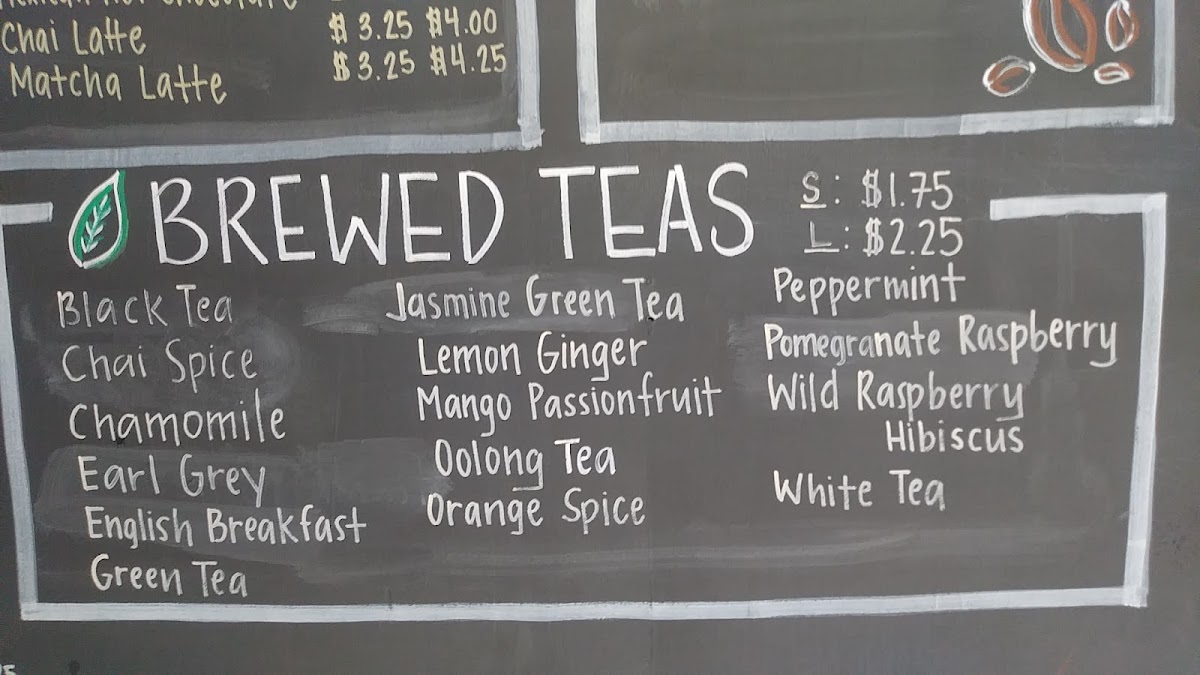 Mexican Hot Chocolate
Chai Latte $3.25 $4.00
Matcha Latte $3.25 $4.25
BREWED TEAS
S: $1.75
L: $2.25
Black Tea
Chai Spice
Chamomile
Earl Grey
English Breakfast
Green Tea
Jasmine Green Tea
Lemon Ginger
Mango Passionfruit
Oolong Tea
Orange Spice
Peppermint
Pomegranate Raspberry
Wild Raspberry
Hibiscus
White Tea